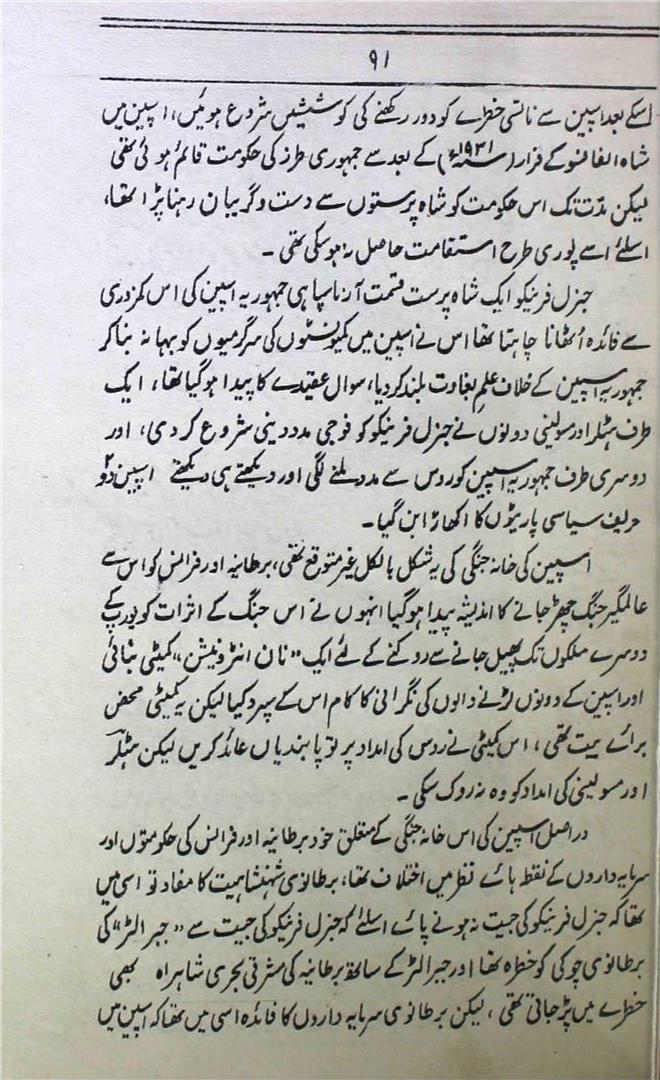 ۹۱
اسکے بعد اسپین سے ناتسی خطرے کو دور رکھنے کی کوششیں شروع ہوئیں، اسپین میں
شاہ الفانسو کے فرار (۱۹۳۱ء) کے بعد سے جمہوری طرز کی حکومت قائم ہوئی تھی
لیکن مدّت تک اس حکومت کو شاہ پرستوں سے دست و گریبان رہنا پڑا تھا،
اسلئے اسے پوری طرح استقامت حاصل نہ ہوسکی تھی ۔
جنرل فرینکو ایک شاہ پرست قسمت آزما سپاہی جمہوریہ اسپین کی اس کمزوری
سے فائدہ اُٹھانا چاہتا تھا اس نے اسپین میں کمیونسٹوں کی سرگرمیوں کو بہانہ بناکر
جمہوریہ اسپین کے خلاف علمِ بغاوت بلند کردیا، سوال عقیدے کا پیدا ہوگیا تھا، ایک
طرف ہٹلر اور مسولینی دونوں نے جنرل فرینکو کو فوجی مدد دینی شروع کردی، اور
دوسری طرف جمہوریہ اسپین کو روس سے مدد ملنے لگی اور دیکھتے ہی دیکھتے اسپین دو
حریف سیاسی پارٹیوں کا اکھاڑا بن گیا۔
اسپین کی خانہ جنگی کی یہ شکل بالکل غیر متوقع تھی، برطانیہ اور فرانس کو اس سے
عالمگیر جنگ چھڑ جانے کا اندیشہ پیدا ہوگیا انہوں نے اس جنگ کے اثرات کو یورپ کے
دوسرے ملکوں تک پھیل جانے سے روکنے کے لئے ایک ”نان انٹروینشن“ کمیٹی بنائی
اور اسپین کے دونوں لڑنے والوں کی نگرانی کا کام اس کے سپرد کیا لیکن یہ کمیٹی محض
برائے بیت تھی، اس کمیٹی نے روس کی امداد پر تو پابندیاں عائد کریں لیکن ہٹلر
اور مسولینی کی امداد کو وہ نہ روک سکی ۔
دراصل اسپین کی اس خانہ جنگی کے متعلق خود برطانیہ اور فرانس کی حکومتوں اور
سرمایہ داروں کے نقطہ ہائے نظر میں اختلاف تھا، برطانوی شہنشاہیت کا مفاد تو اسی میں
تھا کہ جنرل فرینکو کی جیت نہ ہونے پائے اسلئے کہ جنرل فرینکو کی جیت سے ”جبرالٹر“ کی
برطانوی چوکی کو خطرہ تھا اور جبرالٹر کے ساتھ برطانیہ کی مشرقی بحری شاہراہ بھی
خطرے میں پڑجاتی تھی، لیکن برطانوی سرمایہ داروں کا فائدہ اسی میں تھا کہ اسپین میں